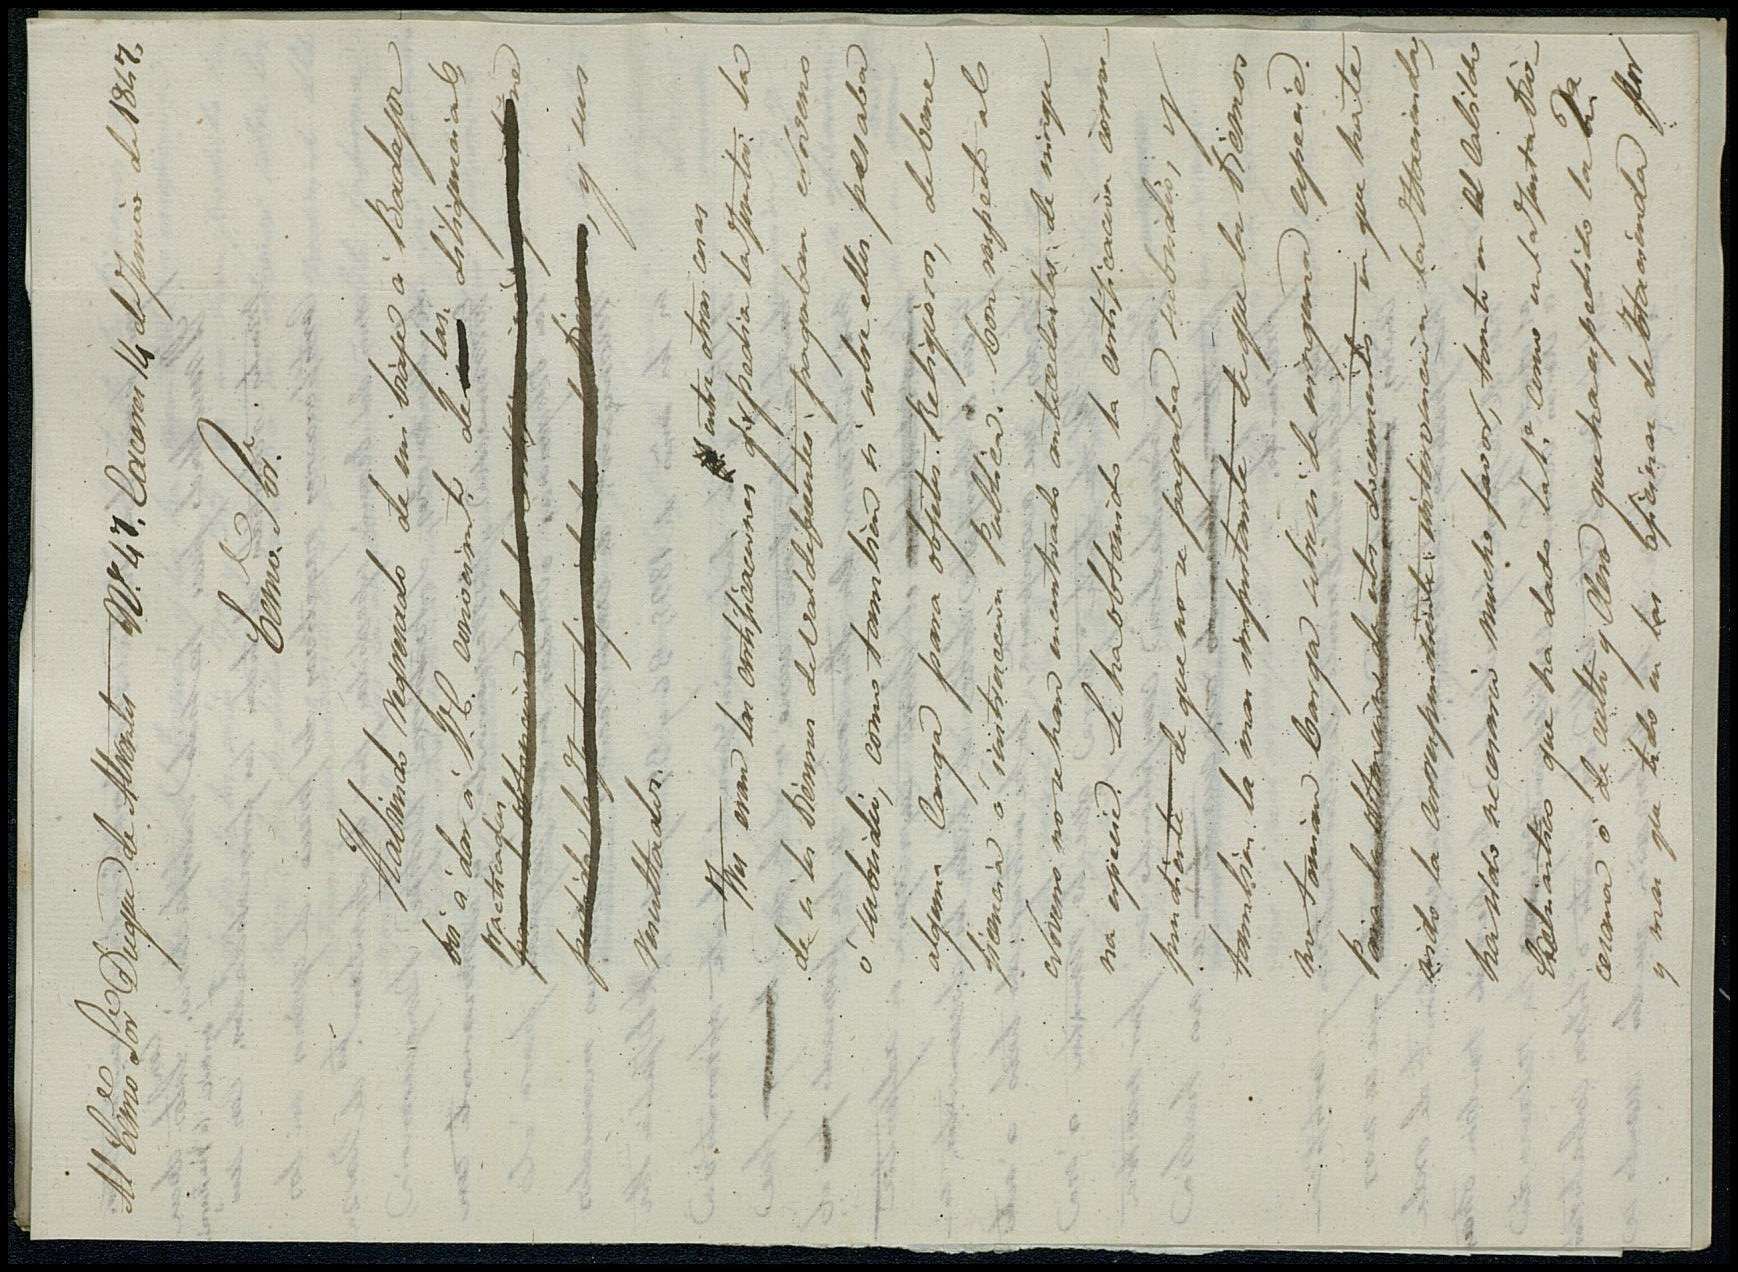 Al Exmo Sor Duque de Abrantes Nº. 47. Caceres 14 de Junio de 1847.
Exmo. Sor.
Habiendo regresado de mi viaje á Badajoz
voi á dar á V.E. conocimto. de las diligencias
practicadas
y sus
resultados.
entre otras cosas
Tres eran las certificaciones q pedia la Junta: la
de si los Bienes de Valdefuentes pagaban Diezmo
ó subsidio, como tambien si sobre ellos pesaba
alguna Carga para obgetos Religiosos, de bene
ficencia ó instruccion publica. Con respecto al
Diezmo no se han encontrado antecedentes de ningu
na especie. Se ha obtenido la certificacion corres
pondiente de que no se pagaba subsidio, y
tambien la mas importante de que los Bienes
no tenian Carga sobre si de ninguna especie.
Para la obtencion de estos documentos en que hecite
nido la correspondiente intervencion la Hacienda,
ha sido necesario mucho favor, tanto en el Cabildo
Eclesiastico que ha dado la 1ª como en la Junta Dio
cesana ó de culto y Clero que ha expedido la 2ª
y mas que todo en las oficinas de Hacienda por